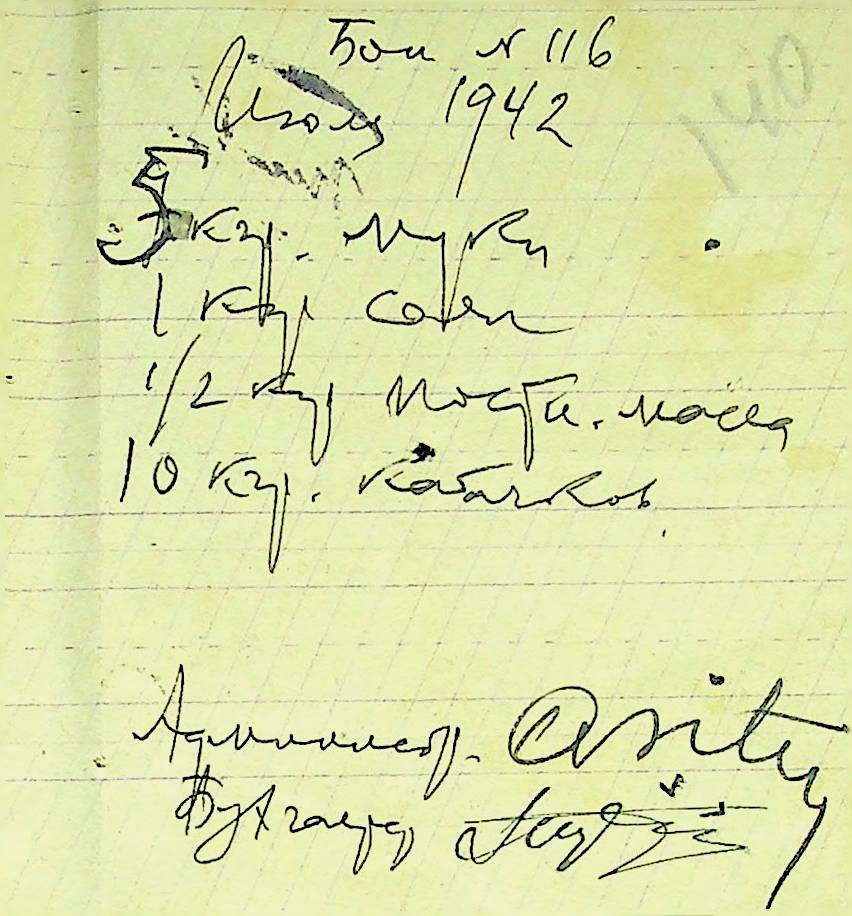 Бон № 116
140
Июль 1942
5 кгр. муки
1 кгр соли
1/2 кгр постн. масла
10 кгр. кабачков
Администр.
Бухгалтер